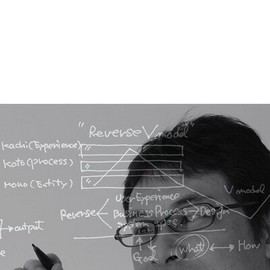 "Reverse V model"
Kachi (Experience)
Koto (process)
Mono (Entity)
User-Experience
V model
Reverse
Business Process → Design
output
Goal
what
How